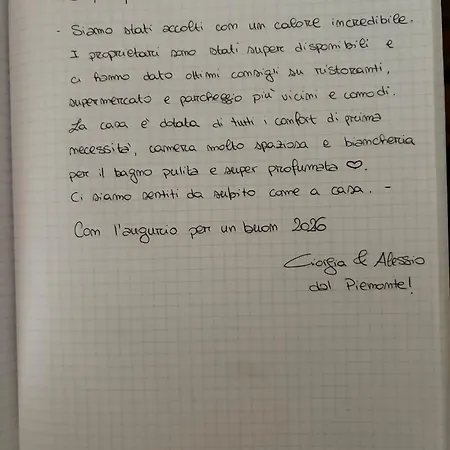 - Siamo stati accolti con un calore incredibile.
I proprietari sono stati super disponibili e
ci hanno dato ottimi consigli su ristoranti,
supermercato e parcheggio più vicini e comodi.
La casa è dotata di tutti i confort di prima
necessità, camera molto spaziosa e biancheria
per il bagno pulita e super profumata ♡.
Ci siamo sentiti da subito come a casa. -
Con l'augurio per un buon 2026
Giorgia & Alessio
dal Piemonte!